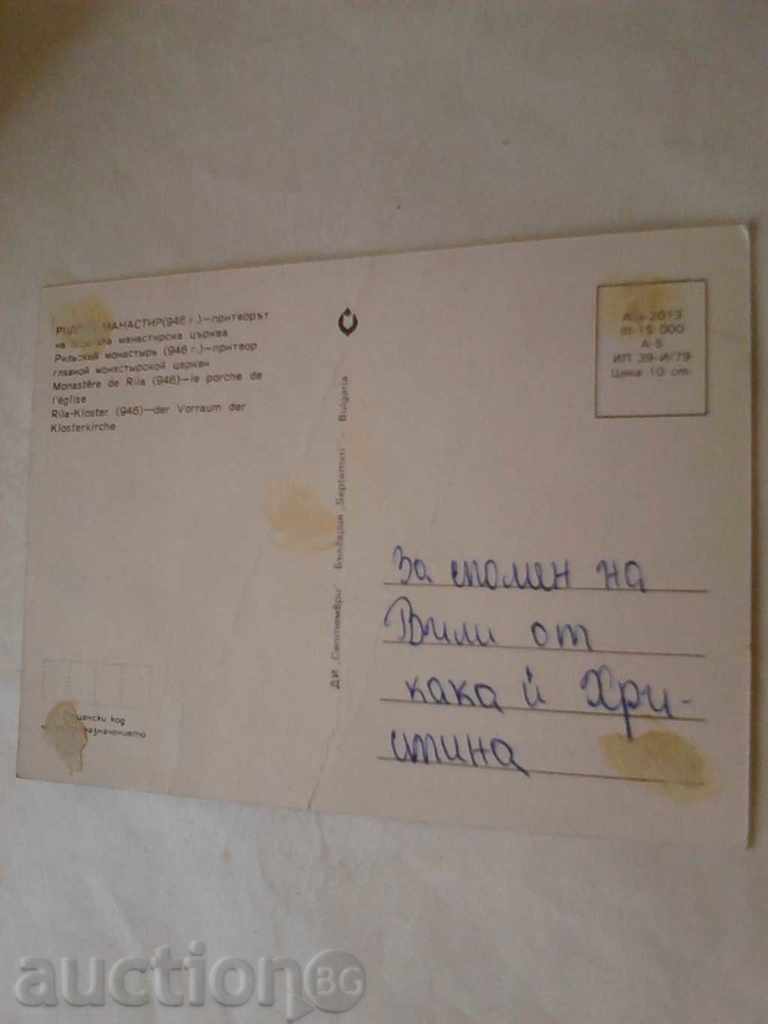 МАНАСТИР(946 г.)—притворът
на манастирска църква
Рильский монастырь (946 г.)—притвор
главной монастырской церкви
Monastère de Rila (946)—le porche de
l'église
Rila-Kloster (946)—der Vorraum der
Klosterkirche
ДИ „Септември" България „Septemvri" - Bulgaria
2013
15 000
А-6
ИП 39-И/79
Цена 10 ст.
За спомен на
Вили от
кака ѝ Хри-
стина
код
auctionBG